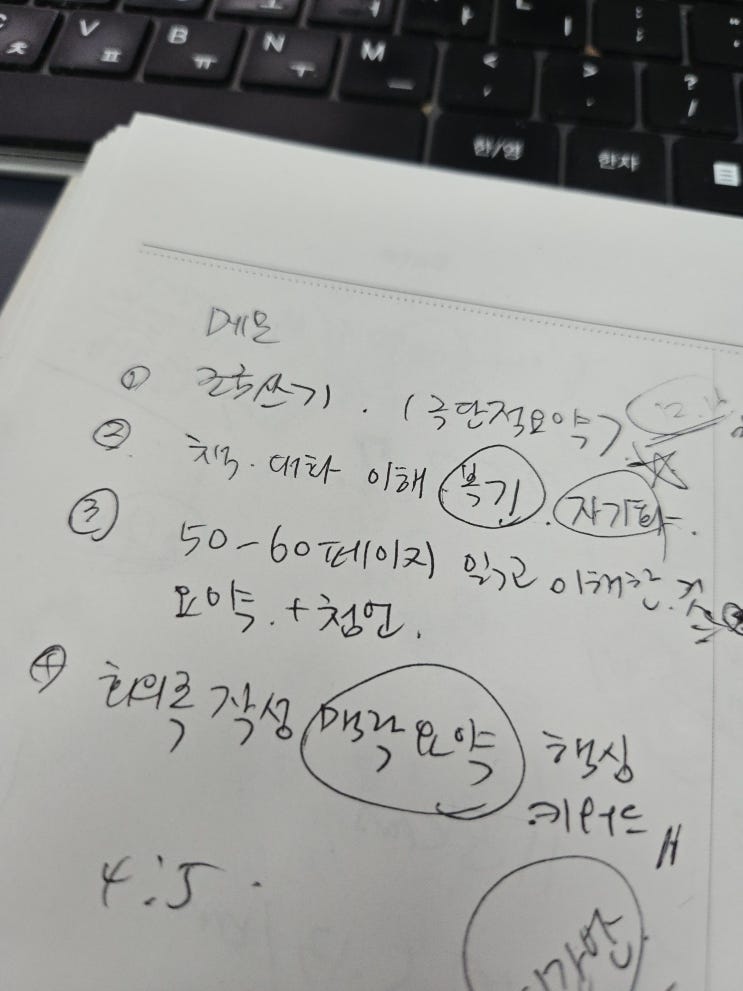 V ㅍ B ㅠ N ㅜ M ㅡ < , > . ? /
한/영 한자
메모
① 쓰기. (극단적요약)
② 책. 대화 이해 복기. 자기화.
③ 50-60페이지 읽고 이해한 것
요약. + 첨언.
④ 회의록 작성 맥락 요약 핵심
키워드
4:5.